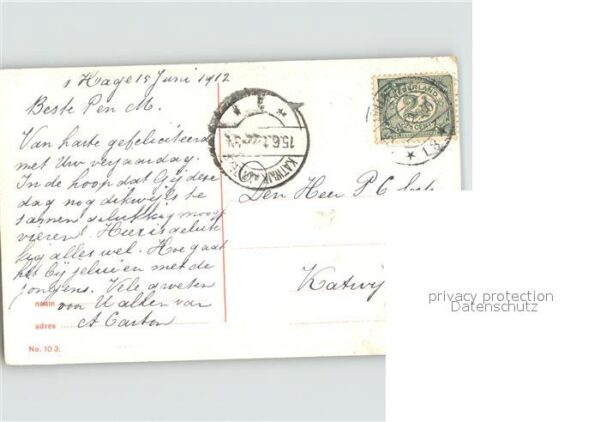 s Hage 15 Juni 1912
Beste P en M.
Van harte gefeliciteerd
met Uw verjaardag.
In de hoop dat Gij deze
dag nog dikwijls te
samen gelukkig moogt
vieren! Hier is geluk
kig alles wel. Hoe gaat
het bij jelui en met de
jongens. Vele groeten
voor U allen van
A Carton
naam
adres
No. 103.
NEDERLAND
2½
CENT
KATWIJK
15.6.1
Den Heer P C
Katwij
privacy protection
Datenschutz